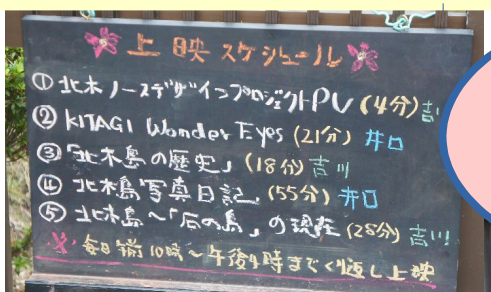 上映スケジュール
① 北木ノースデザインプロジェクトPV (4分) 吉川
② KITAGI Wonder Eyes (21分) 井口
③ 「北木島の歴史」 (18分) 吉川
④ 北木島写真日記 (55分) 井口
⑤ 北木島～「石の島」の現在 (28分) 吉川
毎日午前10時～午後4時までくり返し上映